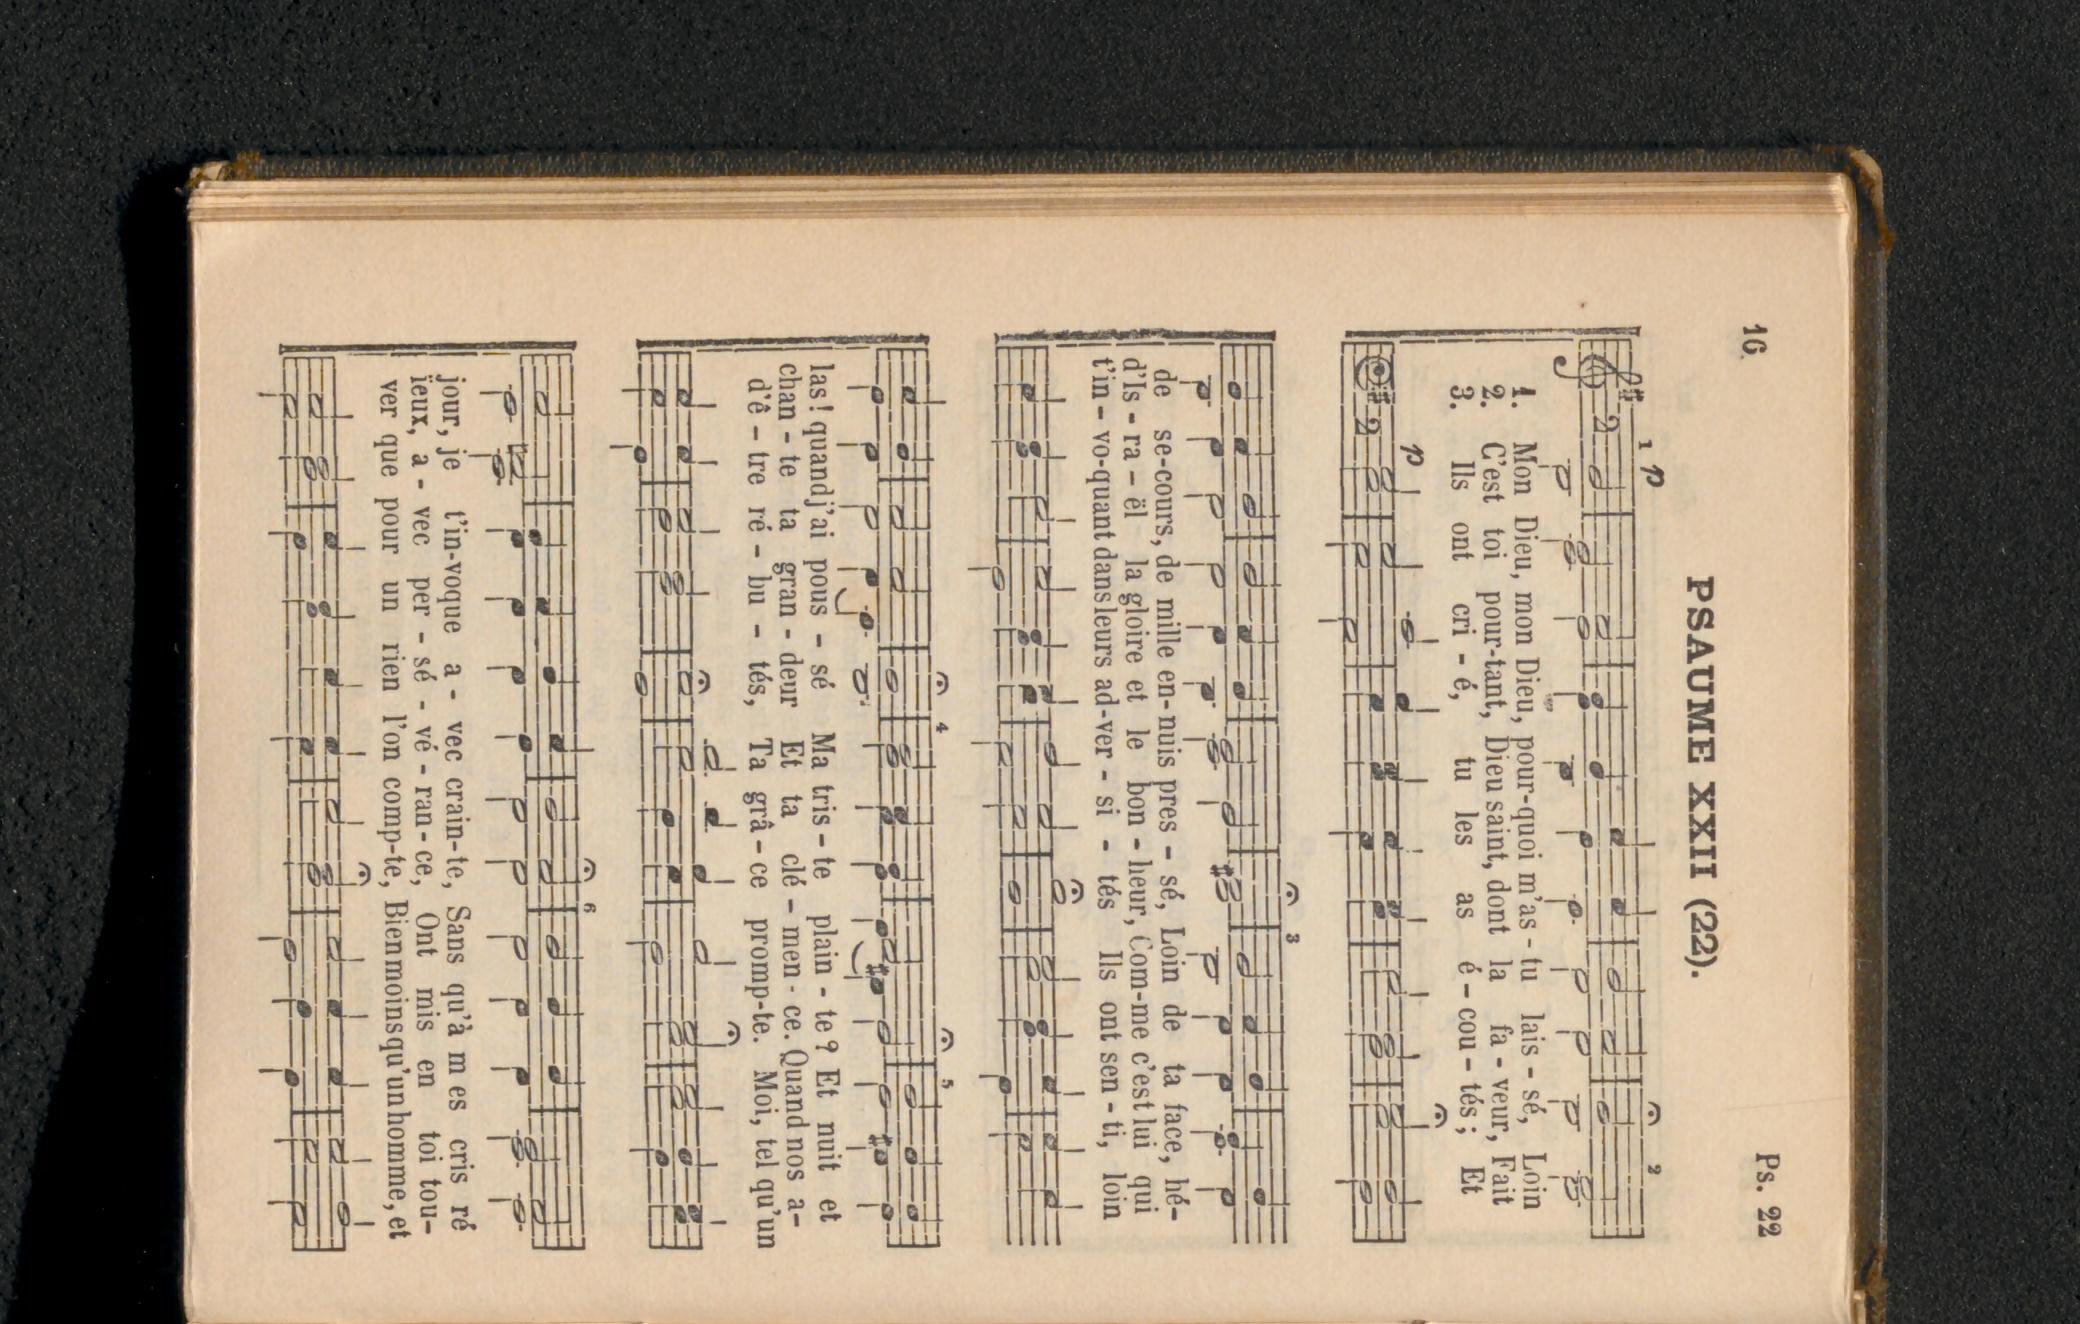 16 Ps. 22
PSAUME XXII (22).
1 p 2
1. Mon Dieu, mon Dieu, pour-quoi m'as - tu lais - sé, Loin
2. C'est toi pour-tant, Dieu saint, dont la fa - veur, Fait
3. Ils ont cri - é, tu les as é - cou - tés; Et
p
3
de se-cours, de mille en-nuis pres - sé, Loin de ta face, hé-
d'Is - ra - ël la gloire et le bon - heur, Com-me c'est lui qui
t'in - vo-quant dans leurs ad-ver - si - tés Ils ont sen - ti, loin
4 5
las! quand j'ai pous - sé Ma tris - te plain - te? Et nuit et
chan - te ta gran - deur Et ta clé - men - ce. Quand nos a-
d'ê - tre ré - bu - tés, Ta grâ - ce promp-te. Moi, tel qu'un
6
jour, je t'in-voque a - vec crain-te, Sans qu'à m es cris ré
ïeux, a - vec per - sé - vé - ran - ce, Ont mis en toi tou-
ver que pour un rien l'on comp-te, Bien moins qu'un homme, et